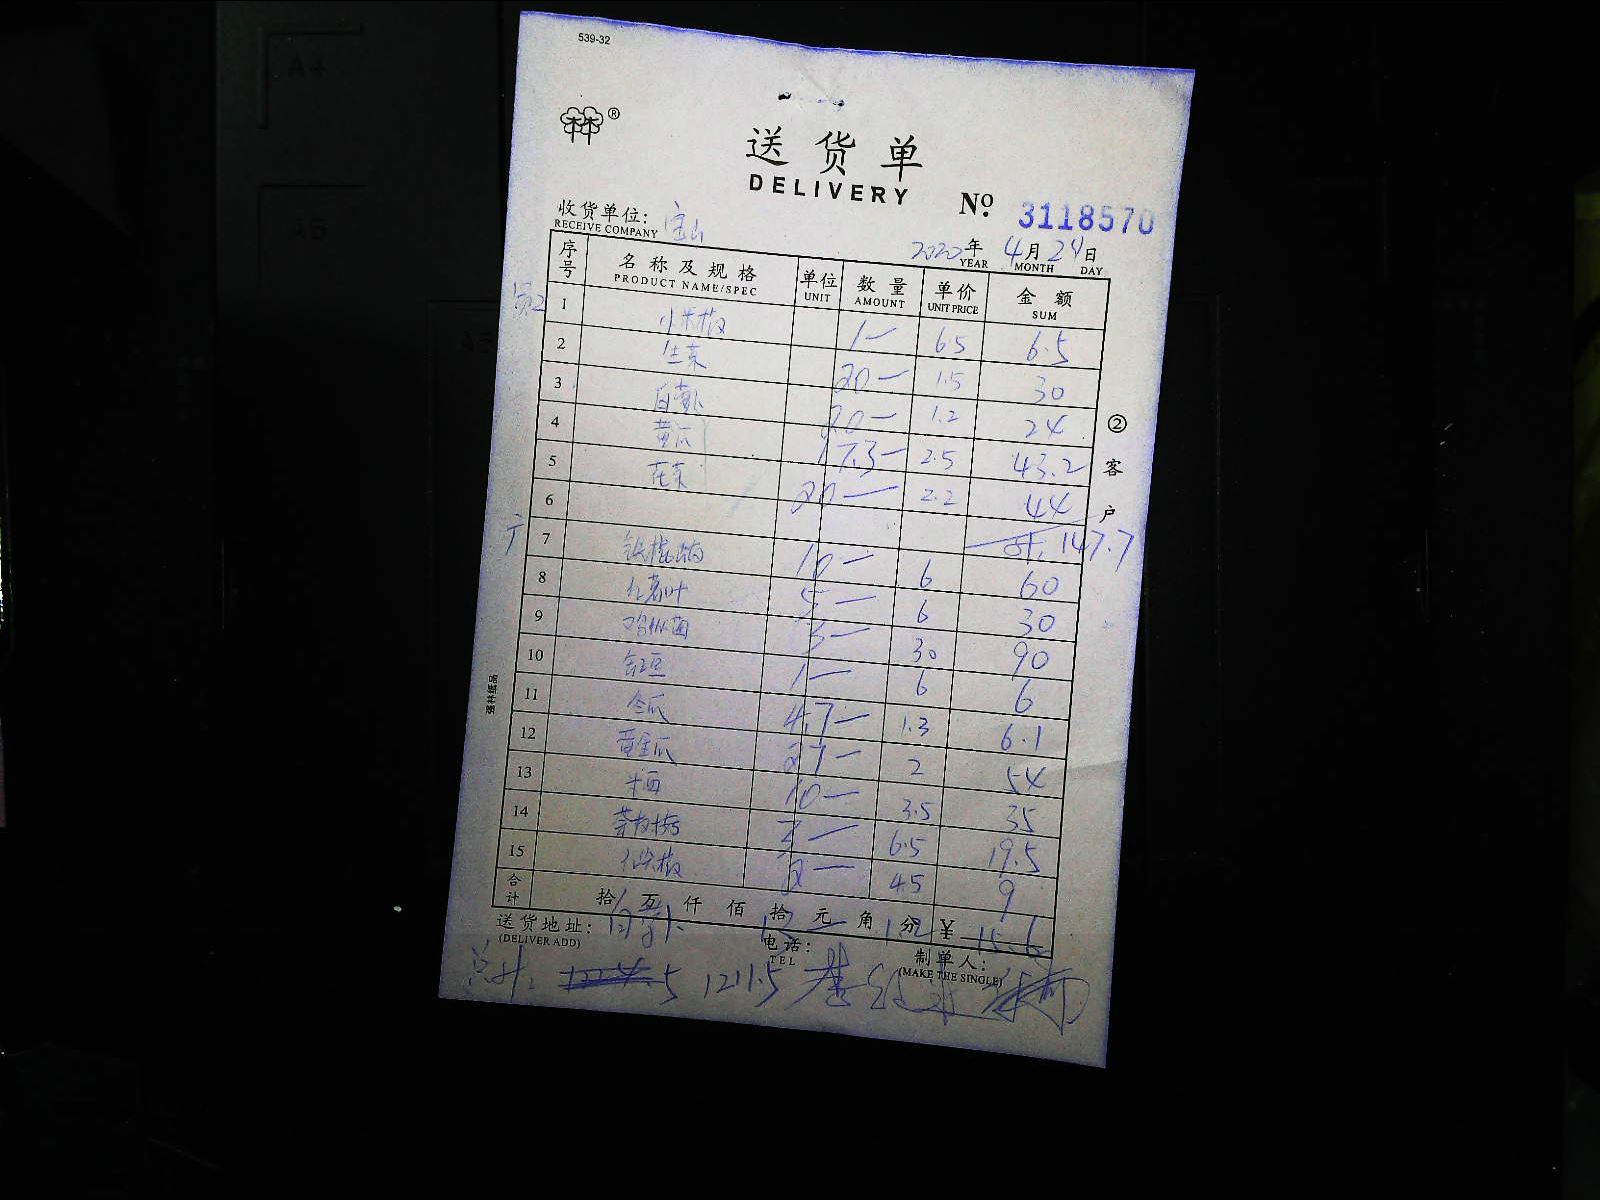 539-32
®
送货单
DELIVERY
No. 3118570
收货单位: 宝山
RECEIVE COMPANY
2020年 4月 24日
YEAR MONTH DAY
序号 名称及规格 单位 数量 单价 金额
PRODUCT NAME/SPEC UNIT AMOUNT UNIT PRICE SUM
1 小米椒 1— 65 6.5
2 生菜 20— 1.5 30
3 白萝卜 20— 1.2 24
4 黄瓜 17.3— 2.5 43.2
5 花菜 20— 2.2 44
6 计: 147.7
7 10— 6 60
8 红薯叶 5— 6 30
9 鸡枞菌 3— 30 90
10 豇豆 1— 6 6
11 冬瓜 4.7— 1.3 6.1
12 黄金瓜 27— 2 54
13 米酒 10— 3.5 35
14 3— 6.5 19.5
15 红尖椒 2— 45 9
合计 拾 万 仟 佰 拾 元 角 分 ¥ 15.6
送货地址: 白萝卜 13— 1.2
(DELIVER ADD)
电话:
TEL
制单人:
(MAKE THE SINGLE)
总计: 1211.5
② 客户
强林纸品